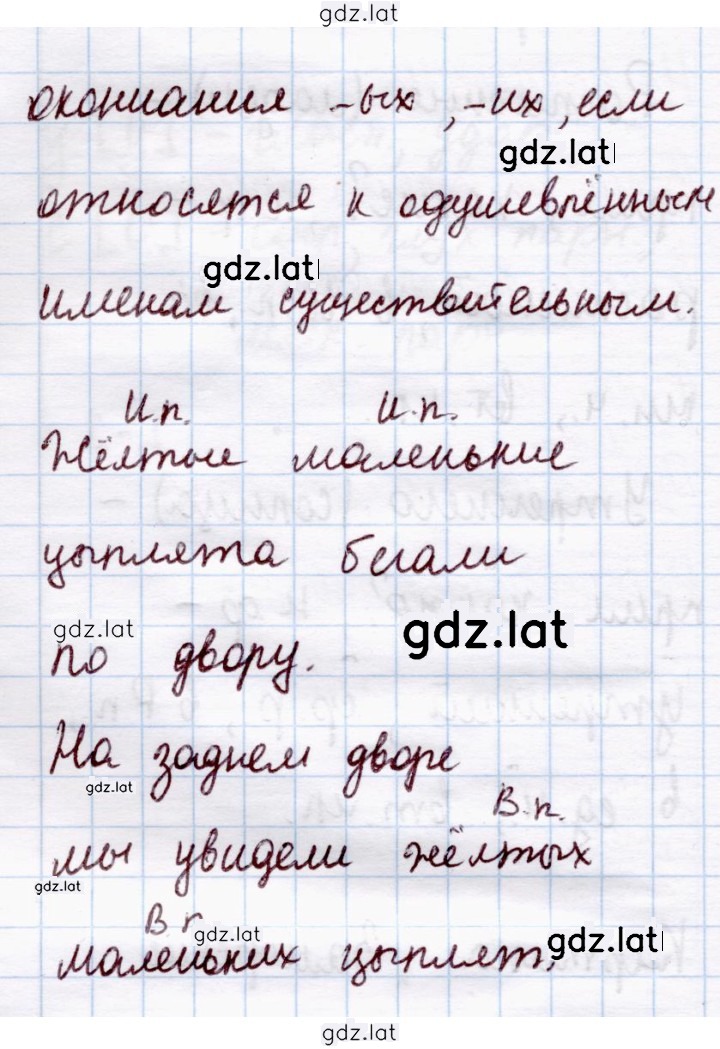 gdz.lat
окончания -ых, -их, если
gdz.lat
относятся к одушевлённым
gdz.lat
именам существительным.
И.п. И.п.
Жёлтые маленькие
цыплята бегали
gdz.lat
gdz.lat
по двору.
На заднем дворе
gdz.lat
В.п.
мы увидели жёлтых
gdz.lat
В п
gdz.lat
gdz.lat
маленьких цыплят.
gdz.lat